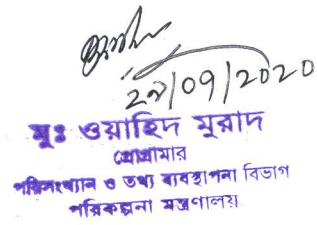 ২৯/০৭/২০২০
মুঃ ওয়াহিদ মুরাদ
প্রোগ্রামার
পরিসংখ্যান ও তথ্য ব্যবস্থাপনা বিভাগ
পরিকল্পনা মন্ত্রণালয়